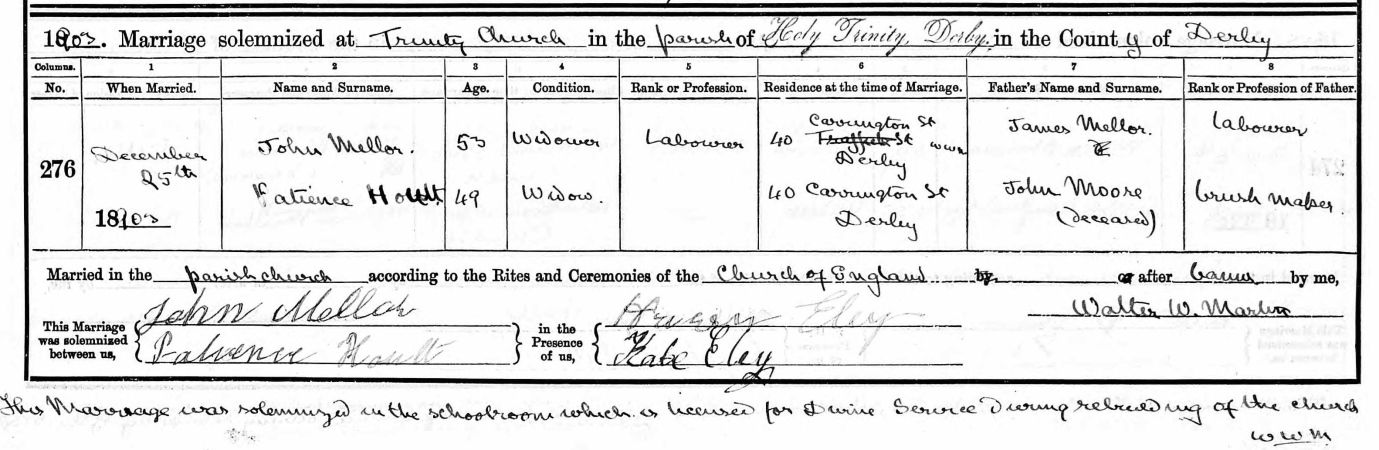 1903. Marriage solemnized at Trinity Church in the parish of Holy Trinity, Derby. in the County of Derby
Columns. 1 2 3 4 5 6 7 8
No. When Married. Name and Surname. Age. Condition. Rank or Profession. Residence at the time of Marriage. Father's Name and Surname. Rank or Profession of Father.
276 December 25th 1903 John Mellor. 53 Widower Labourer 40 Carrington St St WWM Derby James Mellor. Labourer
Patience Hoult 49 Widow. 40 Carrington St Derby John Moore (deceased) brush maker.
Married in the parish church according to the Rites and Ceremonies of the Church of England by or after banns by me,
John Mellor Eley Walter W. Martin
This Marriage was solemnized between us, in the Presence of us,
Patience Hoult Kate Eley
This Marriage was solemnized in the schoolroom which is licensed for Divine Service during rebuilding of the church
WWM